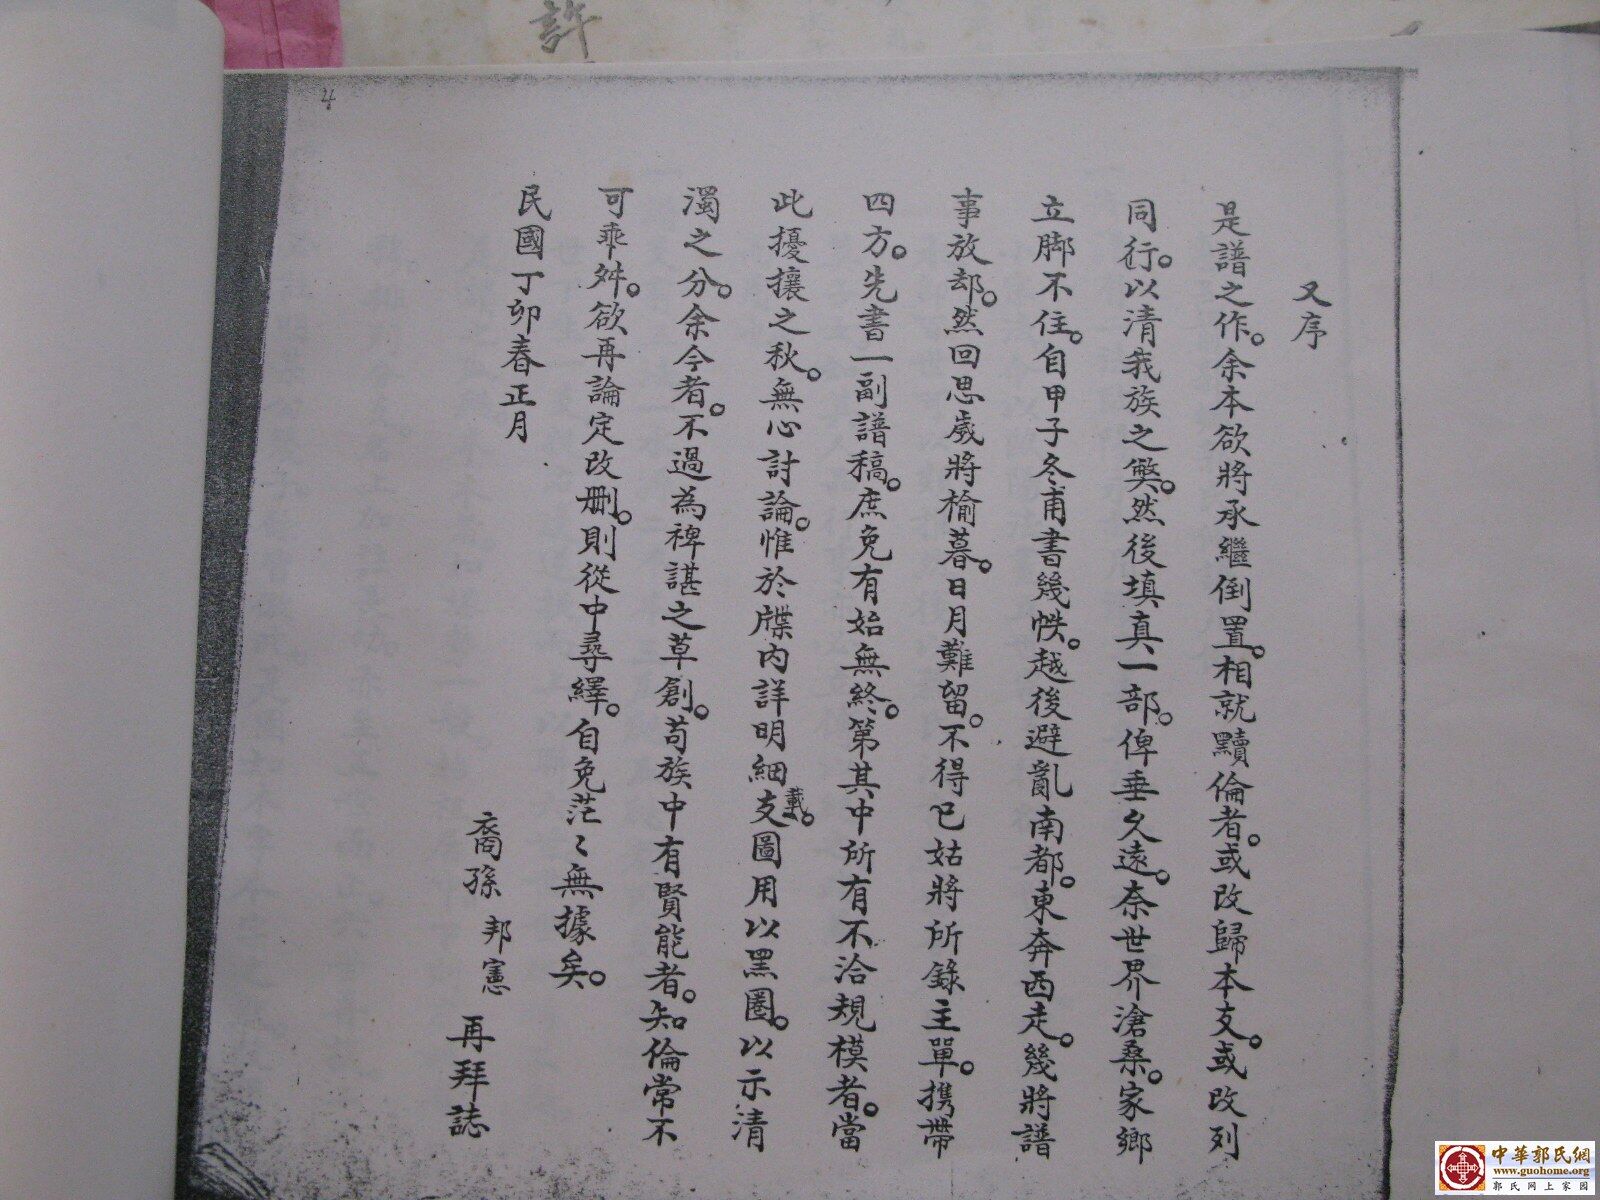 許
4
又序
是譜之作。余本欲將承繼倒置。相就黷倫者。或改歸本支。或改列
同行。以清我族之獘。然後填真一部。俾垂久遠。奈世界滄桑。家鄉
立脚不住。自甲子冬甫書幾帙。越後避亂南都。東奔西走。幾將譜
事放却。然回思歲將榆暮。日月難留。不得已姑將所錄主單。携帶
四方。先書一副譜稿。庶免有始無終。第其中所有不洽規模者。當
此擾攘之秋。無心討論。惟於牒內詳明細載。支圖用以黑圈。以示清
濁之分。余今者。不過為裨諶之草創。苟族中有賢能者。知倫常不
可乖舛。欲再論定改删。則從中尋繹。自免茫〻無據矣。
民國丁卯春正月
裔孫 邦憲 再拜誌
中華郭氏網
www.guohome.org
郭氏网上家园